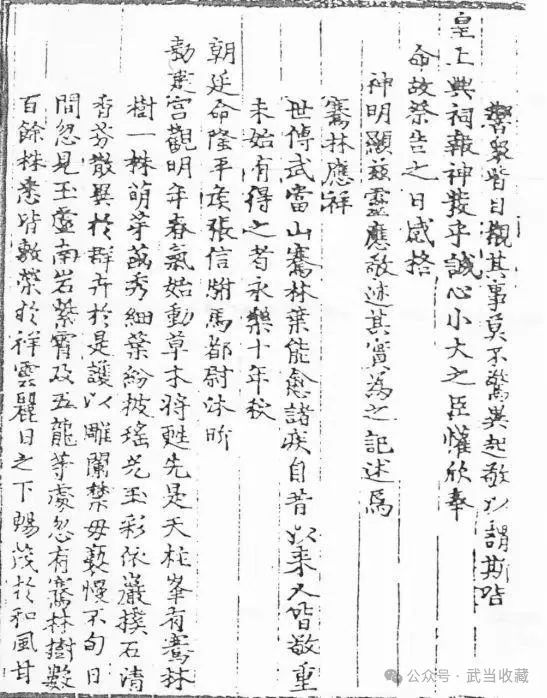 警眾皆目覩其事莫不驚異起敬以謂斯皆
皇上興祠報神發乎誠心小大之臣懽欣奉
命故祭告之日感格
神明顯茲靈應敬述其實為之記述焉
騫林應祥
世傳武當山騫林葉能愈諸疾自昔以來人皆敬重
未始有得之者永樂十年秋
朝廷命隆平侯張信駙馬都尉沐昕
勅建宮觀明年春氣始動草木將甦先是天柱峯有騫林
樹一株萌芽菡秀細葉紛披瑤光玉彩依巖撲石清
香芬散異於群卉於是護以雕闌禁毋褻慢不旬日
間忽見玉虛南岩紫霄及五龍等處忽有騫林樹數
百餘株悉皆敷榮於祥雲麗日之下暢茂於和風甘
公众号·武当收藏